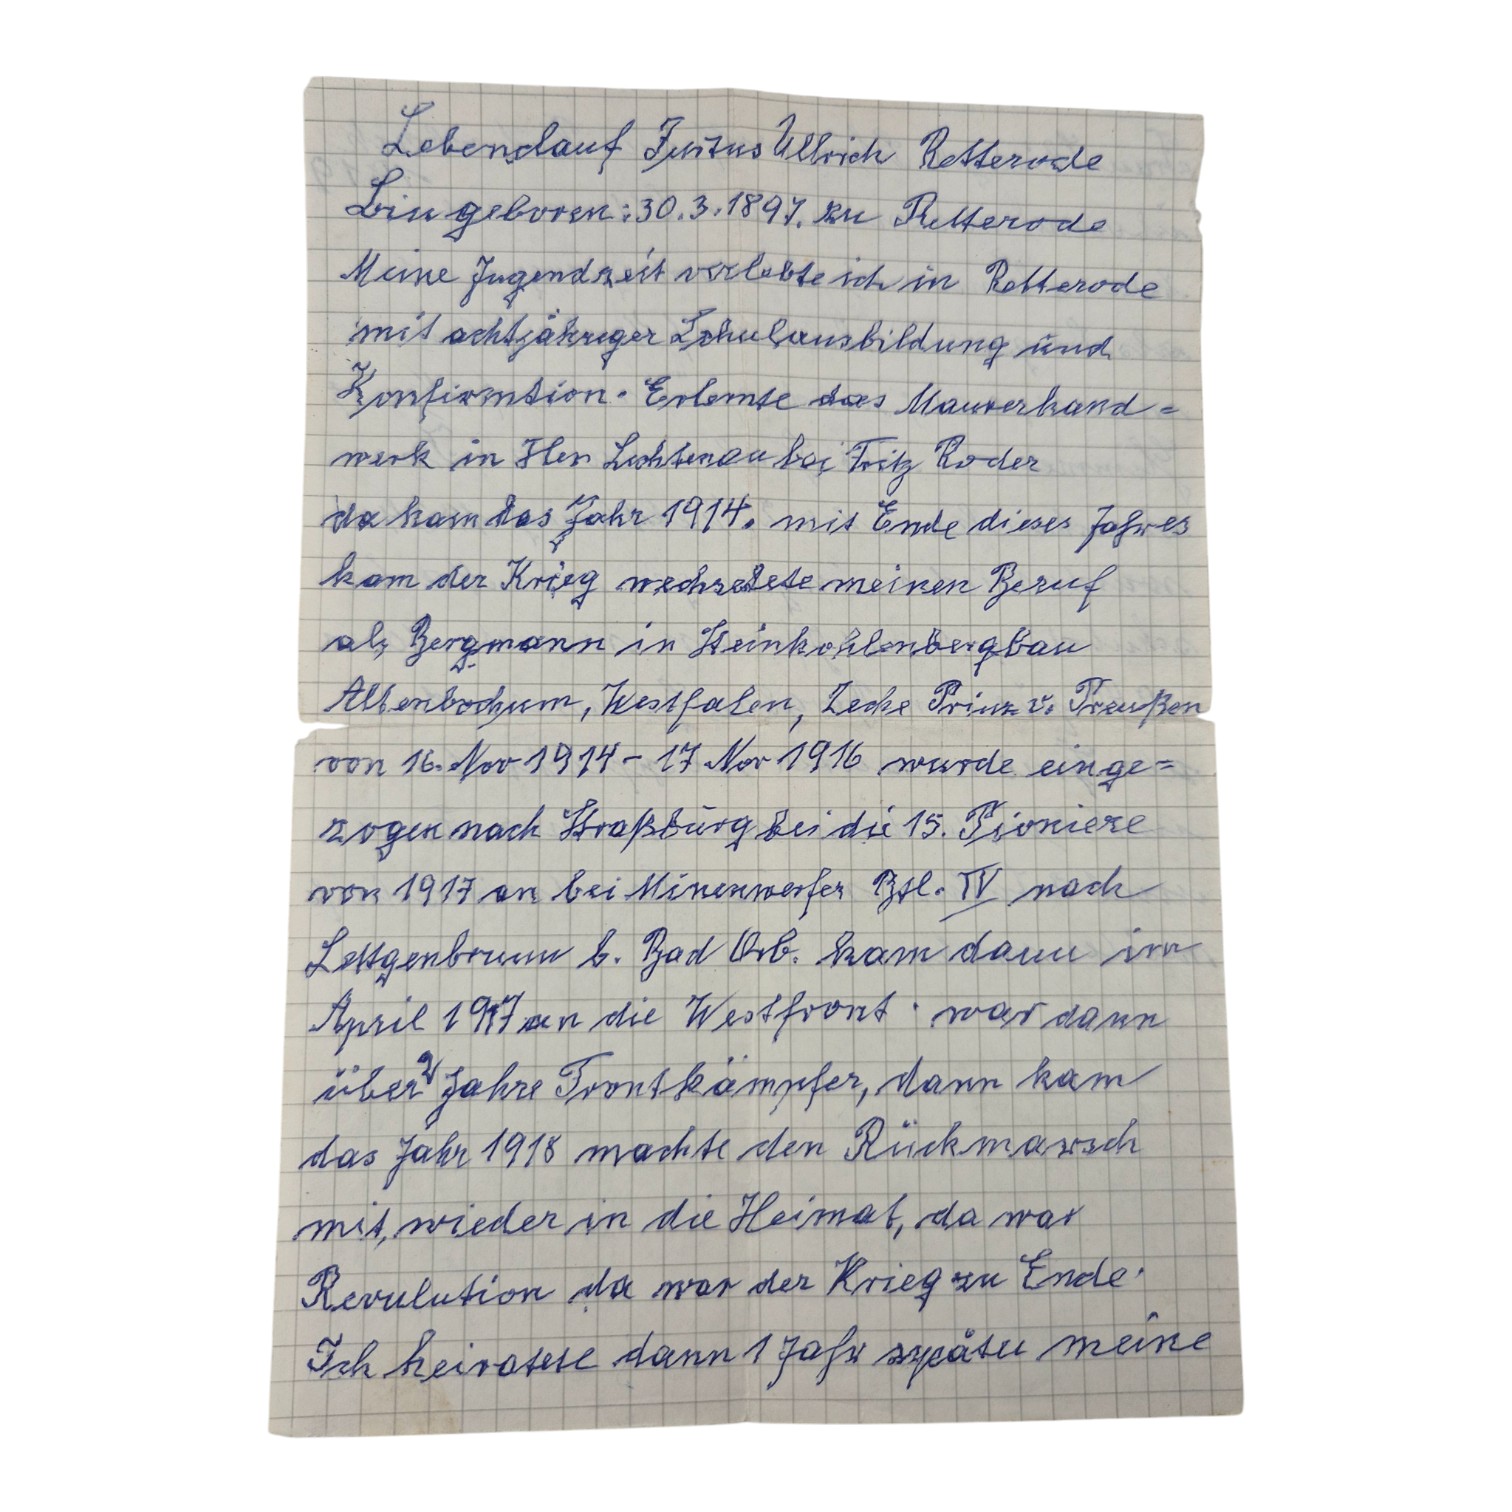 Lebenslauf Justus Ullrich Retterode
Bin geboren: 30.3.1897. zu Retterode
Meine Jugendzeit verlebte ich in Retterode
mit achtjähreger Schulausbildung und
Konfirmtion. Erlernte das Maurerhand=
werk in Hes Lichtenau bei Fritz Roder
da kam das Jahr 1914. mit Ende dieses Jahres
kam der Krieg wechselete meinen Beruf
als Bergmann in Steinkohlenbergbau
Altenbochum, Westfalen, Zeche Prinz v. Preußen
von 16. Nov 1914 - 17 Nov 1916 wurde einge=
zogen nach Straßburg bei die 15. Pioniere
von 1917 an bei Minenwerfer Btl. IV nach
Lettgenbrunn b. Bad Orb. kam dann im
April 1917 an die Westfront. war dann
über 2 Jahre Frontkämpfer, dann kam
das Jahr 1918 machte den Rückmarsch
mit, wieder in die Heimat, da war
Revulution da war der Krieg zu Ende.
Ich heiratete dann 1 Jahr später meine